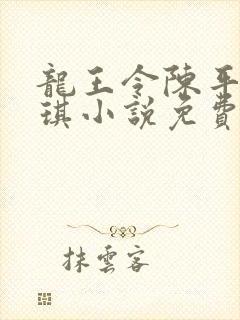 龍王令陳平
琪小說免費
抹雲客